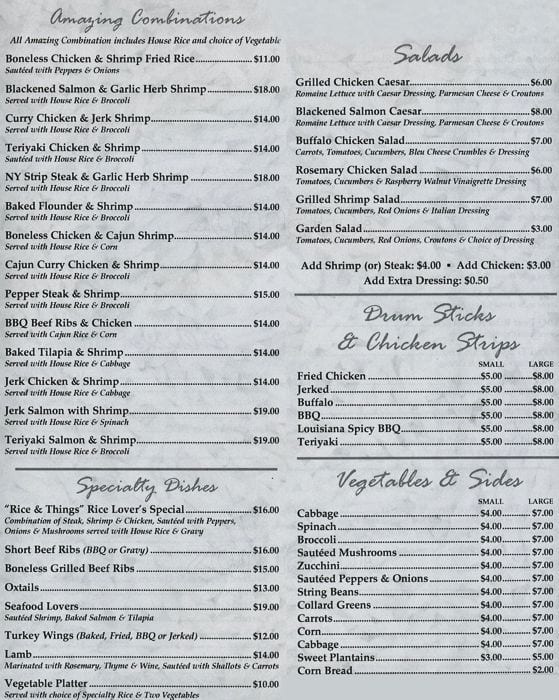 Amazing Combinations
All Amazing Combination includes House Rice and choice of Vegetable
Boneless Chicken & Shrimp Fried Rice $11.00
Sautéed with Peppers & Onions
Blackened Salmon & Garlic Herb Shrimp $18.00
Served with House Rice & Broccoli
Curry Chicken & Jerk Shrimp $14.00
Served with House Rice & Broccoli
Teriyaki Chicken & Shrimp $14.00
Sautéed with House Rice & Broccoli
NY Strip Steak & Garlic Herb Shrimp $18.00
Served with House Rice & Broccoli
Baked Flounder & Shrimp $14.00
Served with House Rice & Broccoli
Boneless Chicken & Cajun Shrimp $14.00
Served with House Rice & Corn
Cajun Curry Chicken & Shrimp $14.00
Served with House Rice & Broccoli
Pepper Steak & Shrimp $15.00
Served with House Rice & Broccoli
BBQ Beef Ribs & Chicken $14.00
Served with Cajun Rice & Corn
Baked Tilapia & Shrimp $14.00
Served with House Rice & Cabbage
Jerk Chicken & Shrimp $14.00
Served with House Rice & Cabbage
Jerk Salmon with Shrimp $19.00
Served with House Rice & Spinach
Teriyaki Salmon & Shrimp $19.00
Served with House Rice & Broccoli
Specialty Dishes
"Rice & Things" Rice Lover's Special $16.00
Combination of Steak, Shrimp & Chicken, Sautéed with Peppers,
Onions & Mushrooms served with House Rice & Gravy
Short Beef Ribs (BBQ or Gravy) $16.00
Boneless Grilled Beef Ribs $15.00
Oxtails $13.00
Seafood Lovers $19.00
Sautéed Shrimp, Baked Salmon & Tilapia
Turkey Wings (Baked, Fried, BBQ or Jerked) $12.00
Lamb $14.00
Marinated with Rosemary, Thyme & Wine, Sautéed with Shallots & Carrots
Vegetable Platter $10.00
Served with choice of Specialty Rice & Two Vegetables
Salads
Grilled Chicken Caesar $6.00
Romaine Lettuce with Caesar Dressing, Parmesan Cheese & Croutons
Blackened Salmon Caesar $8.00
Romaine Lettuce with Caesar Dressing, Parmesan Cheese & Croutons
Buffalo Chicken Salad $7.00
Carrots, Tomatoes, Cucumbers, Bleu Cheese Crumbles & Dressing
Rosemary Chicken Salad $6.00
Tomatoes, Cucumbers & Raspberry Walnut Vinaigrette Dressing
Grilled Shrimp Salad $7.00
Tomatoes, Cucumbers, Red Onions & Italian Dressing
Garden Salad $3.00
Tomatoes, Cucumbers, Red Onions, Croutons & Choice of Dressing
Add Shrimp (or) Steak: $4.00 • Add Chicken: $3.00
Add Extra Dressing: $0.50
Drum Sticks
& Chicken Strips
SMALL LARGE
Fried Chicken $5.00 $8.00
Jerked $5.00 $8.00
Buffalo $5.00 $8.00
BBQ $5.00 $8.00
Louisiana Spicy BBQ $5.00 $8.00
Teriyaki $5.00 $8.00
Vegetables & Sides
SMALL LARGE
Cabbage $4.00 $7.00
Spinach $4.00 $7.00
Broccoli $4.00 $7.00
Sautéed Mushrooms $4.00 $7.00
Zucchini $4.00 $7.00
Sautéed Peppers & Onions $4.00 $7.00
String Beans $4.00 $7.00
Collard Greens $4.00 $7.00
Carrots $4.00 $7.00
Corn $4.00 $7.00
Cabbage $4.00 $7.00
Sweet Plantains $3.00 $5.00
Corn Bread $2.00